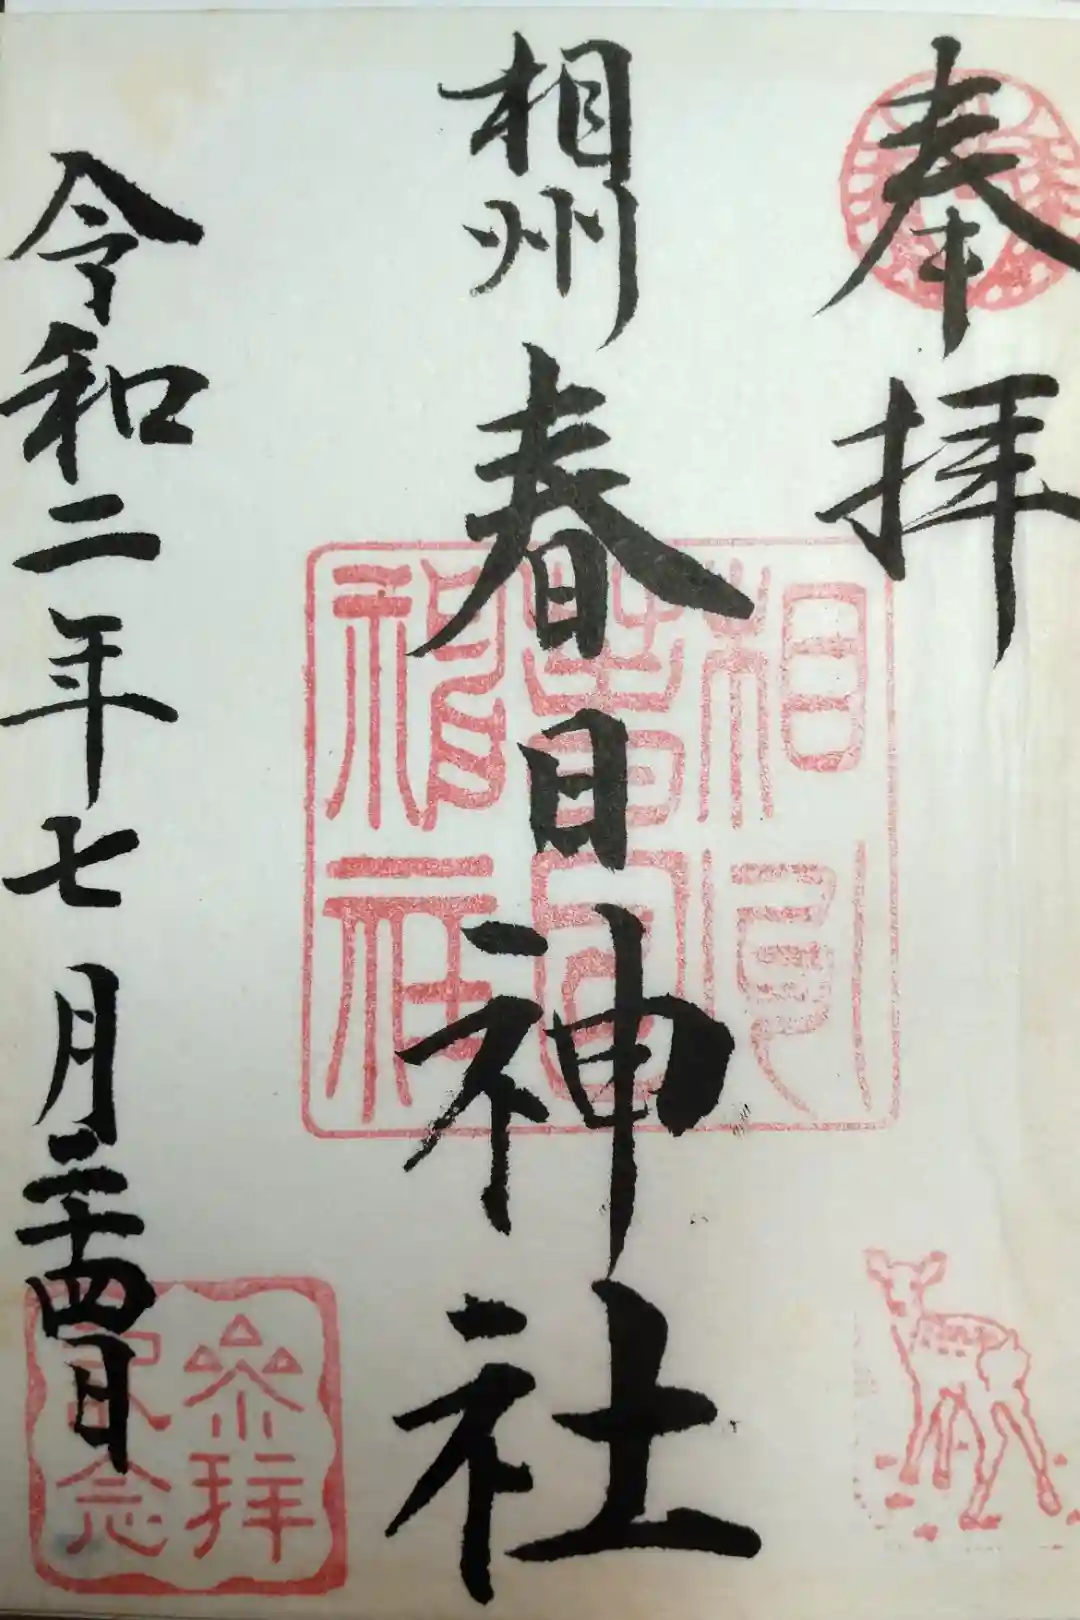 奉拝
相州春日神社
令和二年七月二十四日
相州
春日
神社
参拝
記念